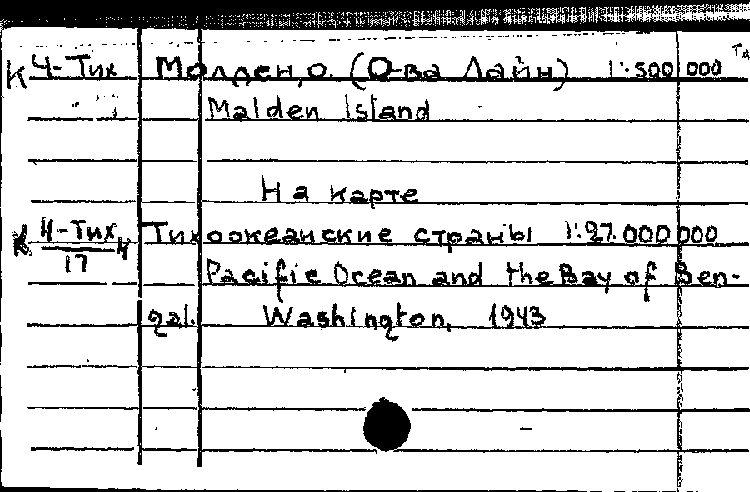 К Ч-Тих Молден, о. (О-ва Лайн) 1:500 000
Malden Island
На карте
Ч-Тих Тихоокеанские страны 1:27.000 000
17
Pacific Ocean and the Bay of Ben-
gal. Washington, 1943